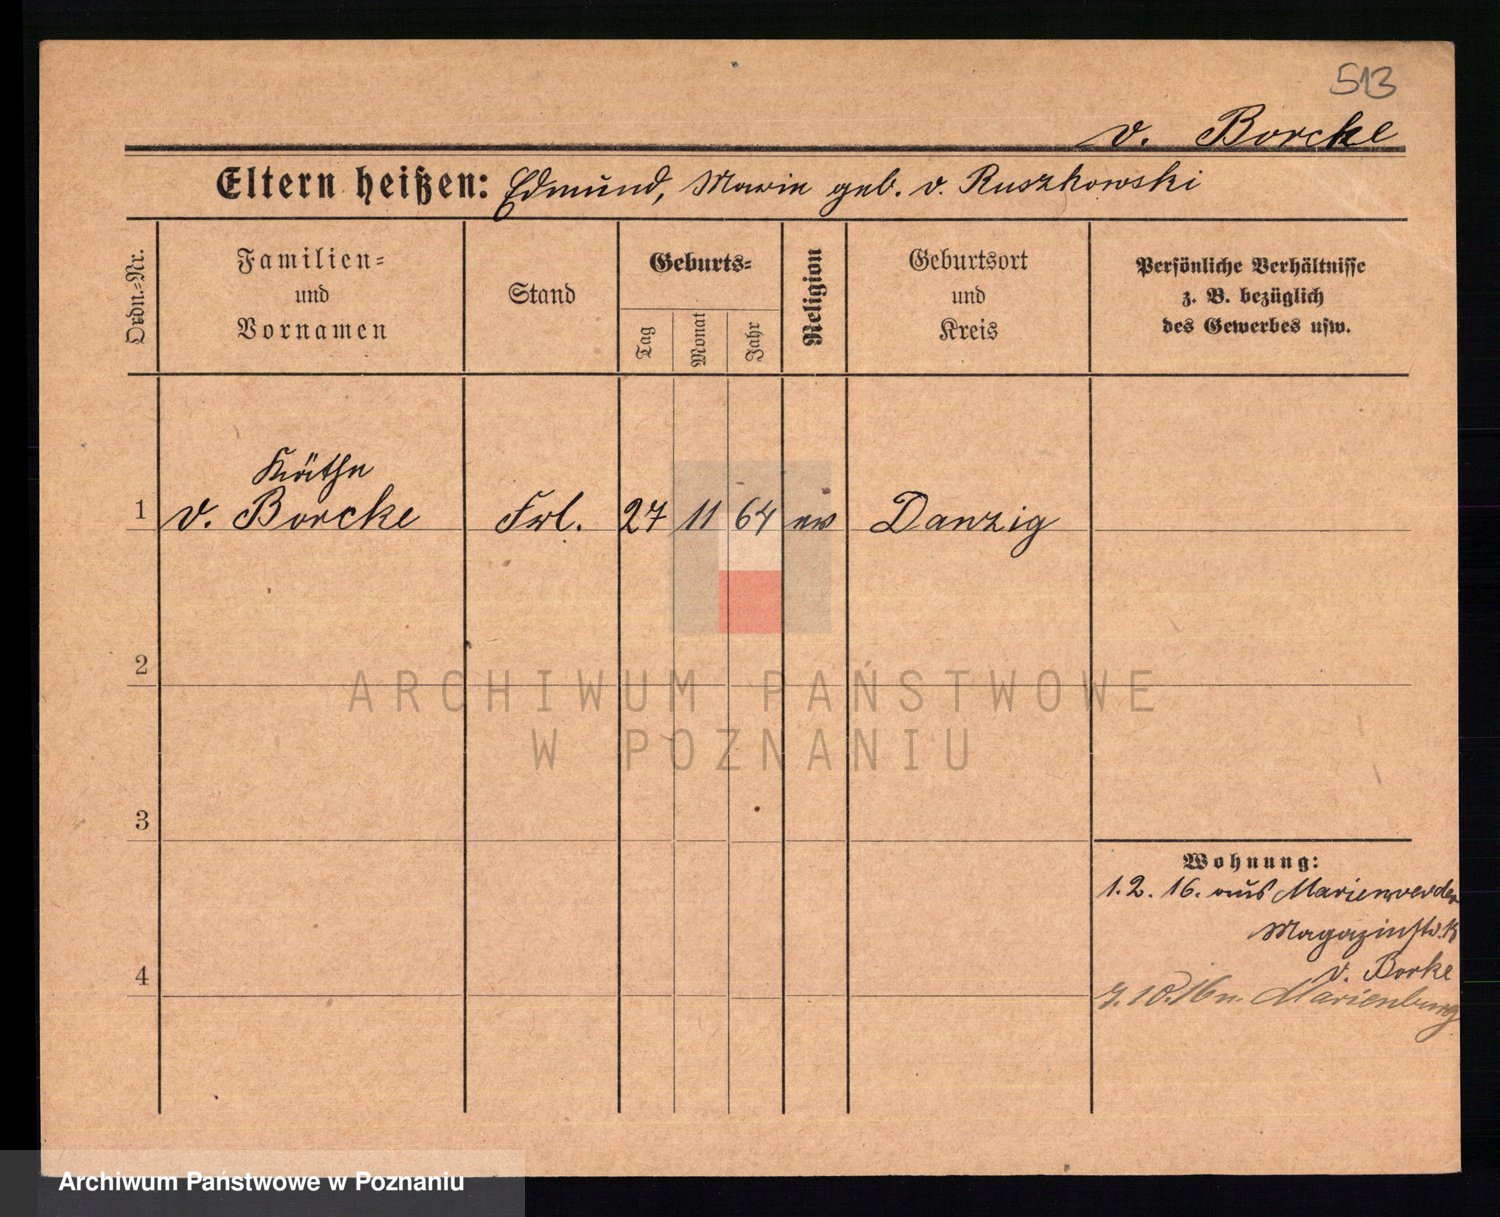 513
v. Borcke
Eltern heißen: Edmund, Marie geb. v. Ruszkowski
Ordn.-Nr.
Familien=
und
Vornamen
Stand
Geburts=
Tag
Monat
Jahr
Religion
Geburtsort
und
Kreis
Persönliche Verhältnisse
z. B. bezüglich
des Gewerbes usw.
Käthe
1 v. Borcke Frl. 27 11 64 ev Danzig
2
ARCHIWUM PAŃSTWOWE
W POZNANIU
3
Wohnung:
1. 2. 16. aus Marienwerder
Magazinstr.
v. Borke
4
7.10.16 n. Marienburg
Archiwum Państwowe w Poznaniu